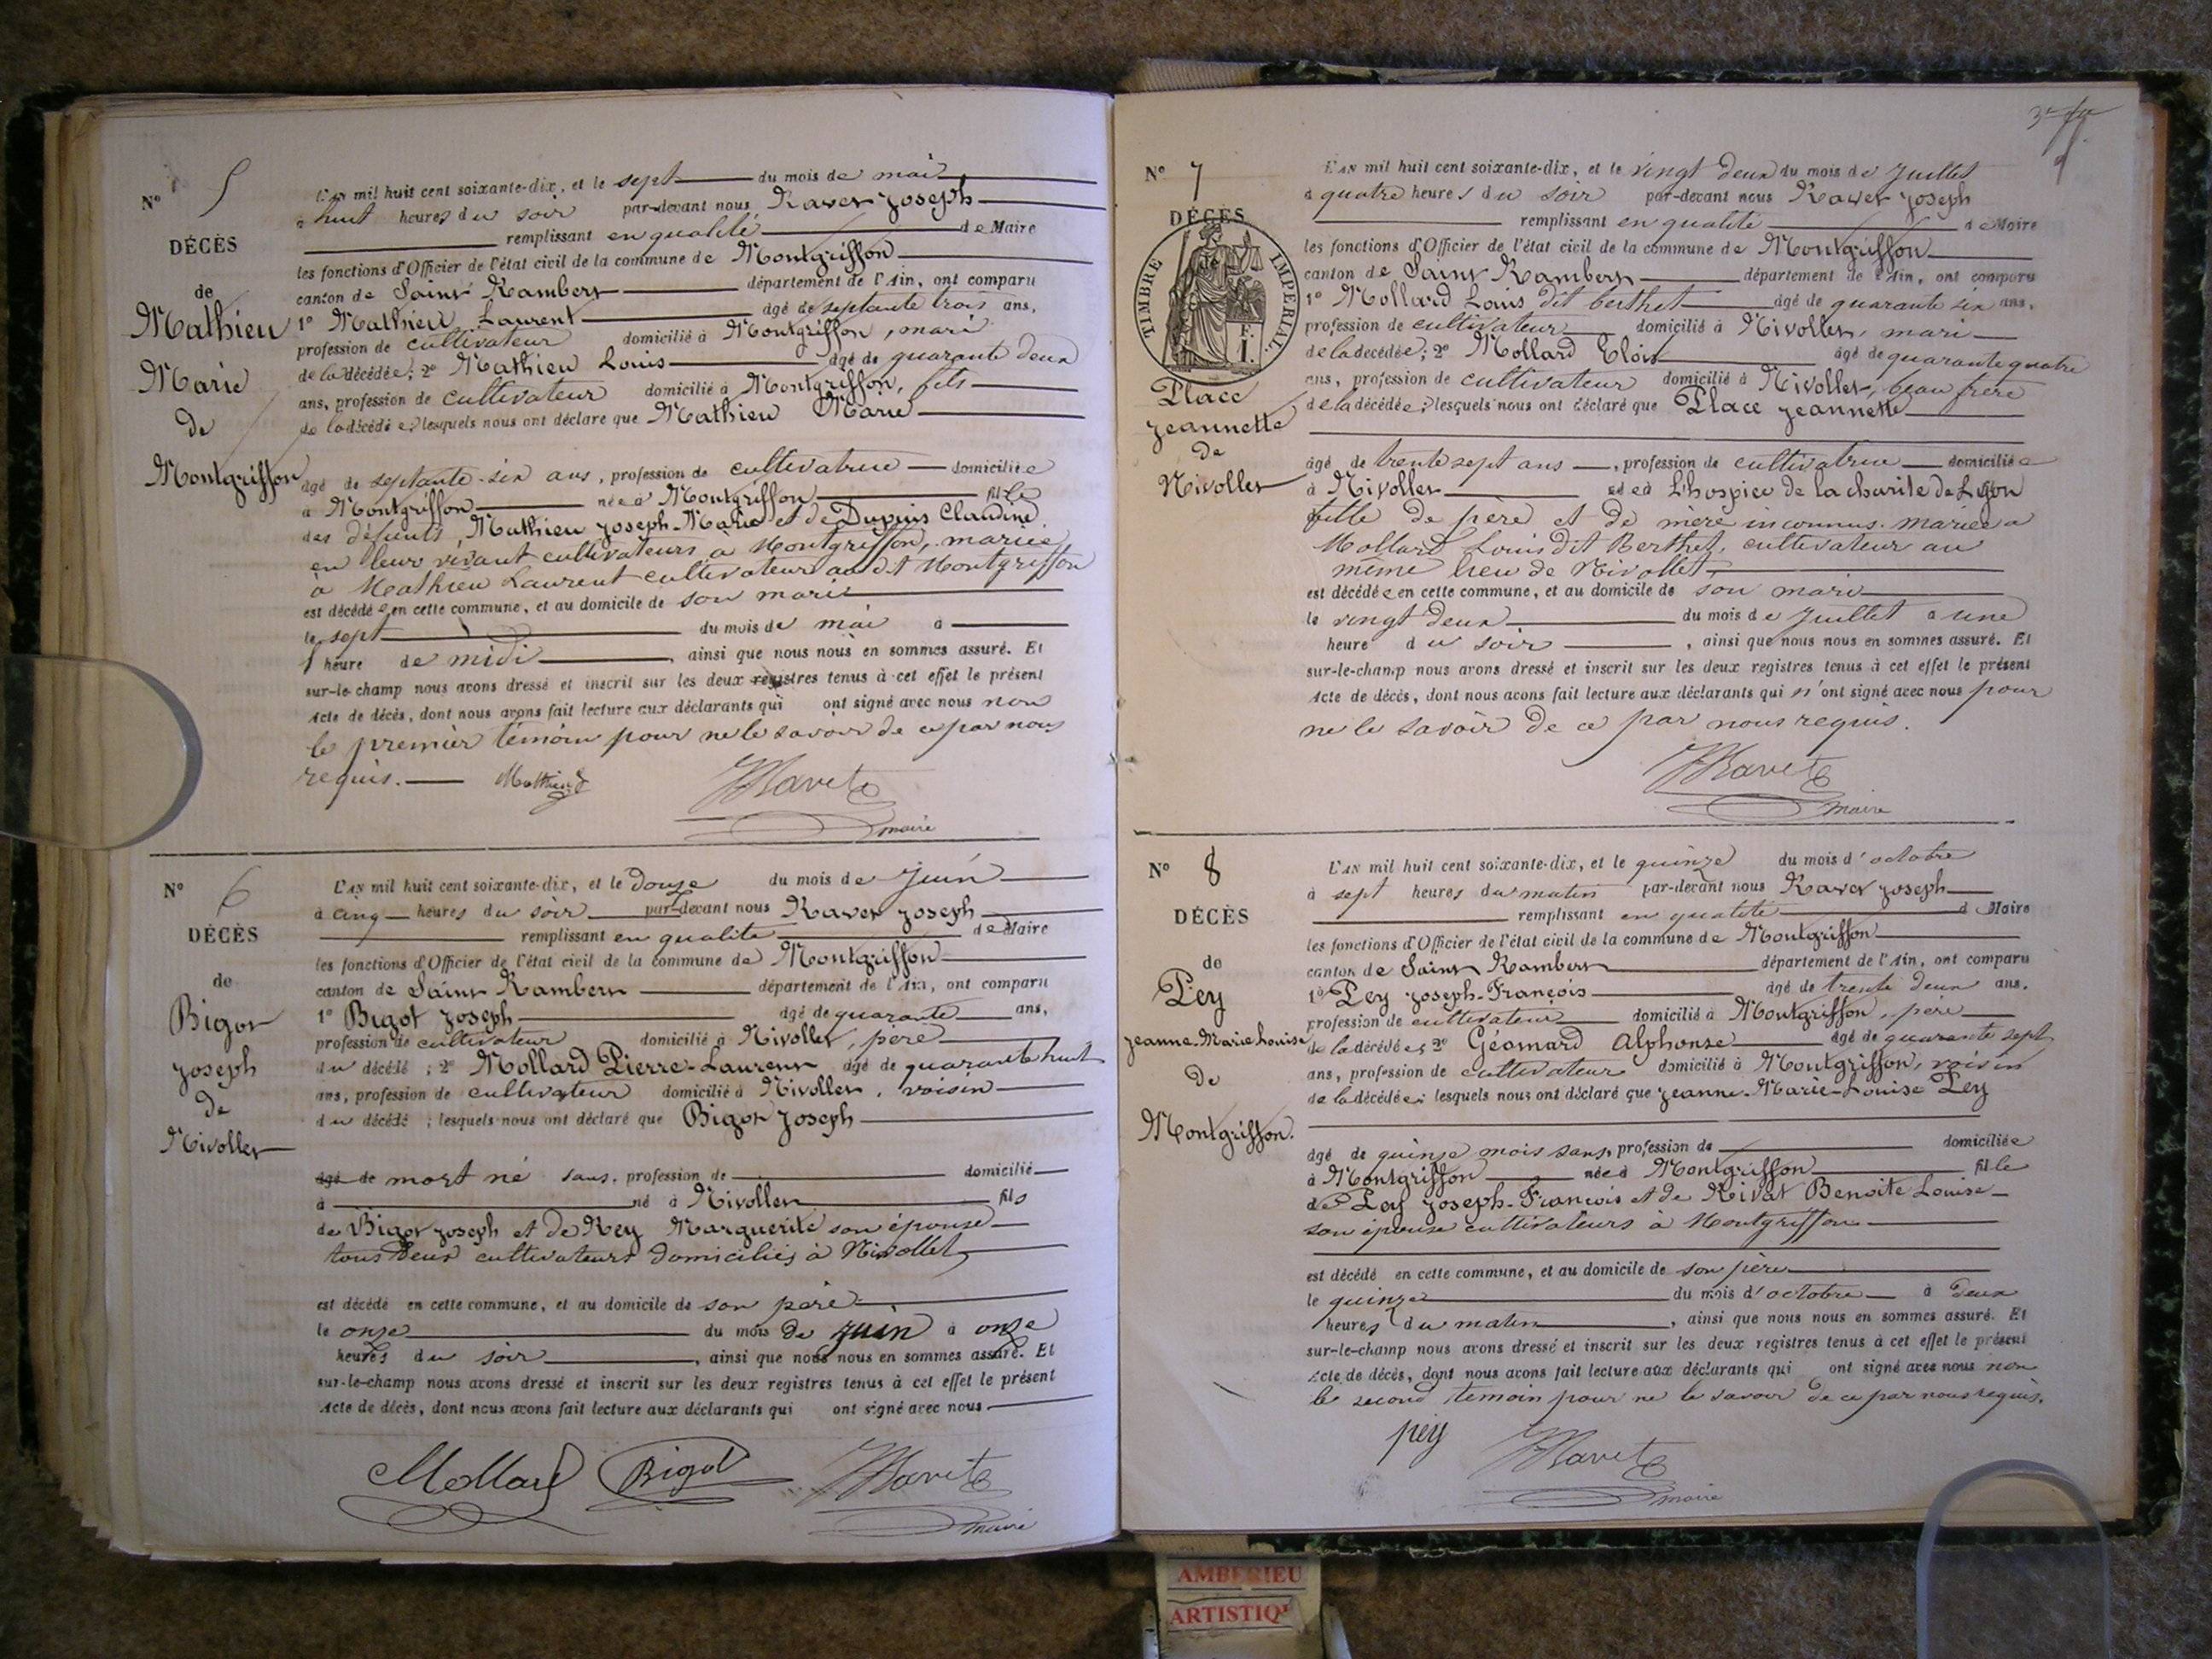 N° 5
DÉCÈS
de
Mathieu
Marie
de
Montgriffon
L'AN mil huit cent soixante-dix, et le sept du mois de mai
à huit heures du soir par-devant nous Ravet Joseph
remplissant en qualité de Maire
les fonctions d'Officier de l'état civil de la commune de Montgriffon
canton de Saint Rambert département de l'Ain, ont comparu
1° Mathieu Laurent âgé de septante trois ans,
profession de cultivateur domicilié à Montgriffon, mari
de la décédée; 2° Mathieu Louis âgé de quarante deux
ans, profession de cultivateur domicilié à Montgriffon, fils
de la décédée; lesquels nous ont déclaré que Mathieu Marie
âgé de septante-six ans, profession de cultivatrice domiciliée
à Montgriffon née à Montgriffon fille
des défunts, Mathieu Joseph-Marie et de Dupuis Claudine,
en leur vivant cultivateurs à Montgriffon, mariée
à Mathieu Laurent cultivateur au dit Montgriffon
est décédée en cette commune, et au domicile de son mari
le sept du mois de mai à
1 heure de midi, ainsi que nous nous en sommes assuré. Et
sur-le-champ nous avons dressé et inscrit sur les deux registres tenus à cet effet le présent
Acte de décès, dont nous avons fait lecture aux déclarants qui ont signé avec nous non
le premier témoin pour ne le savoir de ce par nous
requis. Mathieu JRavet
maire
N° 6
DÉCÈS
de
Bigot
Joseph
de
Nivollet
L'AN mil huit cent soixante-dix, et le douze du mois de Juin
à cinq heures du soir par-devant nous Ravet Joseph
remplissant en qualité de Maire
les fonctions d'Officier de l'état civil de la commune de Montgriffon
canton de Saint Rambert département de l'Ain, ont comparu
1° Bigot Joseph âgé de quarante ans,
profession de cultivateur domicilié à Nivollet, père
du décédé; 2° Mollard Pierre-Laurent âgé de quarante huit
ans, profession de cultivateur domicilié à Nivollet, voisin
du décédé; lesquels nous ont déclaré que Bigot Joseph
âgé de mort né sans, profession de domicilié
à né à Nivollet fils
de Bigot Joseph et de Rey Marguerite son épouse
tous deux cultivateurs domiciliés à Nivollet
est décédé en cette commune, et au domicile de son père
le onze du mois de juin à onze
heures du soir, ainsi que nous nous en sommes assuré. Et
sur-le-champ nous avons dressé et inscrit sur les deux registres tenus à cet effet le présent
Acte de décès, dont nous avons fait lecture aux déclarants qui ont signé avec nous
Mollard Bigot JRavet
maire
N° 7
DÉCÈS
de
TIMBRE IMPERIAL
F.
1.
Place
Jeannette
de
Nivollet
L'AN mil huit cent soixante-dix, et le vingt deux du mois de Juillet
à quatre heures du soir par-devant nous Ravet Joseph
remplissant en qualité de Maire
les fonctions d'Officier de l'état civil de la commune de Montgriffon
canton de Saint Rambert département de l'Ain, ont comparu
1° Mollard Louis dit berthet âgé de quarante six ans,
profession de cultivateur domicilié à Nivollet, mari
de la décédée; 2° Mollard Eloi âgé de quarante quatre
ans, profession de cultivateur domicilié à Nivollet, beau frère
de la décédée; lesquels nous ont déclaré que Place Jeannette
âgé de trente sept ans, profession de cultivatrice domiciliée
à Nivollet née à L'hospice de la charité de Lyon
fille de père et de mère inconnus. mariée a
Mollard Louis dit Berthet, cultivateur au
même lieu de Nivollet,
est décédée en cette commune, et au domicile de son mari
le vingt deux du mois de Juillet à une
heure du soir, ainsi que nous nous en sommes assuré. Et
sur-le-champ nous avons dressé et inscrit sur les deux registres tenus à cet effet le présent
Acte de décès, dont nous avons fait lecture aux déclarants qui n'ont signé avec nous pour
ne le savoir de ce par nous requis.
JRavet
maire
N° 8
DÉCÈS
de
Pey
Jeanne-Marie Louise
de
Montgriffon.
L'AN mil huit cent soixante-dix, et le quinze du mois d'octobre
à sept heures du matin par-devant nous Ravet Joseph
remplissant en qualité d Maire
les fonctions d'Officier de l'état civil de la commune de Montgriffon
canton de Saint Rambert département de l'Ain, ont comparu
1° Pey Joseph-François âgé de trente deux ans,
profession de cultivateur domicilié à Montgriffon, père
de la décédée; 2° Géomard Alphonse âgé de quarante sept
ans, profession de cultivateur domicilié à Montgriffon, voisin
de la décédée; lesquels nous ont déclaré que Jeanne-Marie-Louise Pey
âgé de quinze mois sans, profession de domiciliée
à Montgriffon née à Montgriffon fille
de Pey Joseph-François et de Rivat Benoite Louise
son épouse cultivateurs à Montgriffon
est décédé en cette commune, et au domicile de son père
le quinze du mois d'octobre à deux
heures du matin, ainsi que nous nous en sommes assuré. Et
sur-le-champ nous avons dressé et inscrit sur les deux registres tenus à cet effet le présent
Acte de décès, dont nous avons fait lecture aux déclarants qui ont signé avec nous non
le second temoin pour ne le savoir de ce par nous requis.
pey JRavet
maire
AMBERIEU
ARTISTIQ